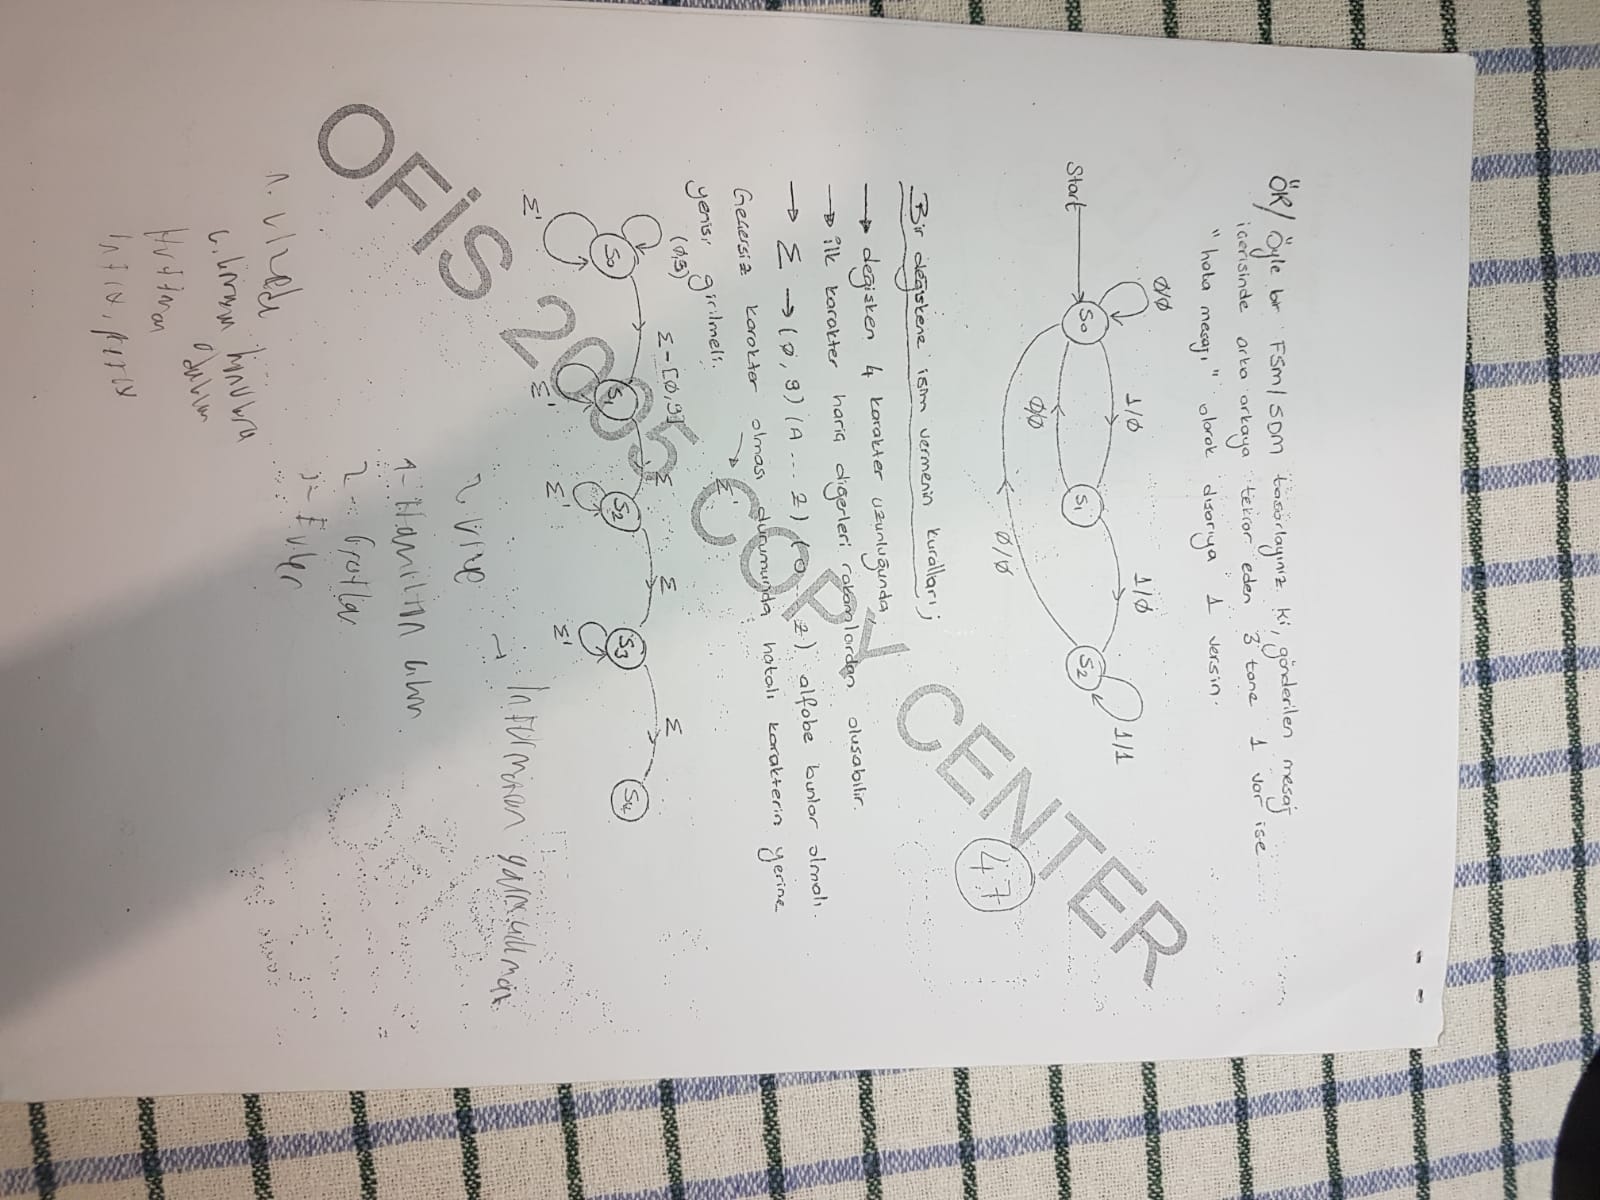 ÖR/ Öyle bir FSM/SDM tasarlayınız ki, gönderilen mesaj
içerisinde arka arkaya tekrar eden 3 tane 1 var ise
"hata mesajı" olarak dışarıya 1 versin.
Ø/Ø
1/Ø
1/Ø
1/1
Start
S0
S1
S2
Ø/Ø
Ø/Ø
47
Bir değişkene isim vermenin kuralları;
→ değişken 4 karakter uzunluğunda
→ ilk karakter hariç diğerleri rakamlardan oluşabilir.
→ Σ → (Ø, 9) (A ... Z) (a ... z) alfabe bunlar olmalı.
Geçersiz karakter olması durumunda hatalı karakterin yerine
→ Σ'
yenisi girilmeli.
(Ø,9)
Σ-[Ø,9]
Σ
Σ
Σ
S0
S1
S2
S3
S4
Σ'
Σ'
Σ'
Σ'
2. vize
1- Hamilton
2-
3- Euler
1. vizede
Huffman
infix,
OFİS 2005 COPY CENTER